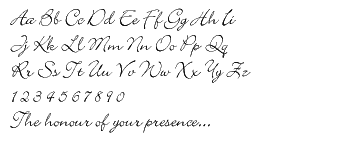 Aa Bb Cc Dd Ee Ff Gg Hh Ii
Jj Kk Ll Mm Nn Oo Pp Qq
Rr Ss Tt Uu Vv Ww Xx Yy Zz
1 2 3 4 5 6 7 8 9 0
The honour of your presence...